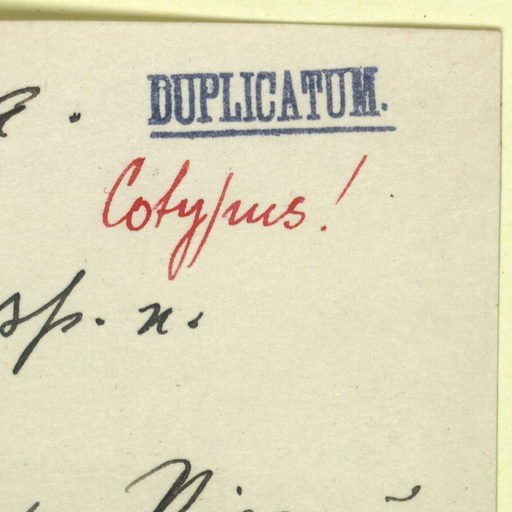 DUPLICATUM.
Cotypus!
sp. n.